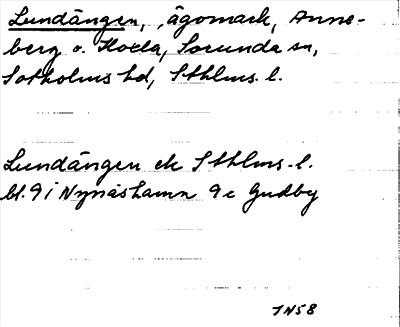 Lundängen, ägomark, Anne-
berg o. Klocka, Sorunda sn,
Sotholms hd, Sthlms l.
Lundängen ek Sthlms l.
bl. 9 i Nynäshamn 9 c Gudby
JN58